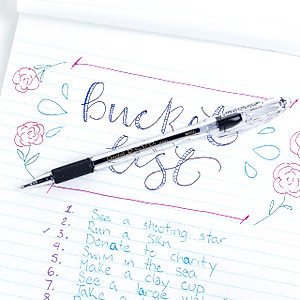 bucket
list
1. See a shooting star
2. Run a 5kn
✓ 3. Donate to charity
4. Swim in the sea
5. Make a clay cup
6. See a large
7. Take a
8.